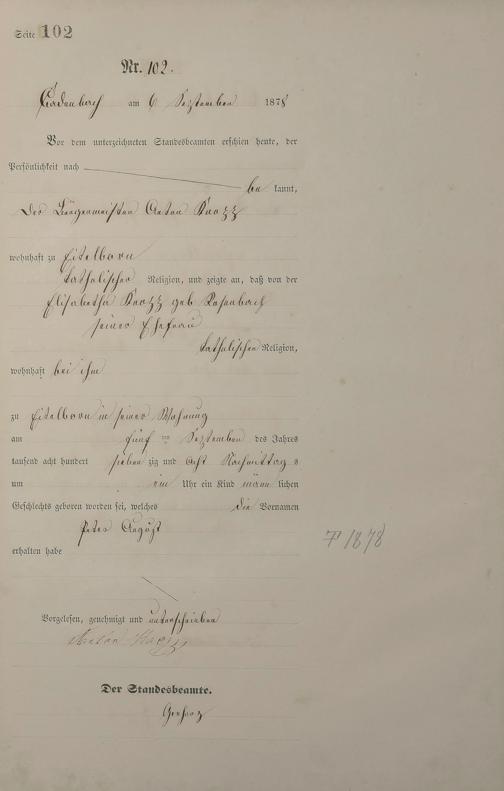 Seite 102
Nr. 102.
Cadenbach am 6 September 1878
Vor dem unterzeichneten Standesbeamten erschien heute, der
Persönlichkeit nach
be kannt,
der Bürgermeister Anton Knopp
wohnhaft zu Eitelborn
katholischer Religion, und zeigte an, daß von der
Elisabetha Knopp geb Rosenbach
seiner Ehefrau
katholischer Religion,
wohnhaft bei ihm
zu Eitelborn in seiner Wohnung
am fünf ten September des Jahres
tausend acht hundert sieben zig und acht Nachmittag s
um ein Uhr ein Kind männ lichen
Geschlechts geboren worden sei, welches die Vornamen
Peter August
erhalten habe
Vorgelesen, genehmigt und unterschrieben
Anton Knopp
Der Standesbeamte.
1878